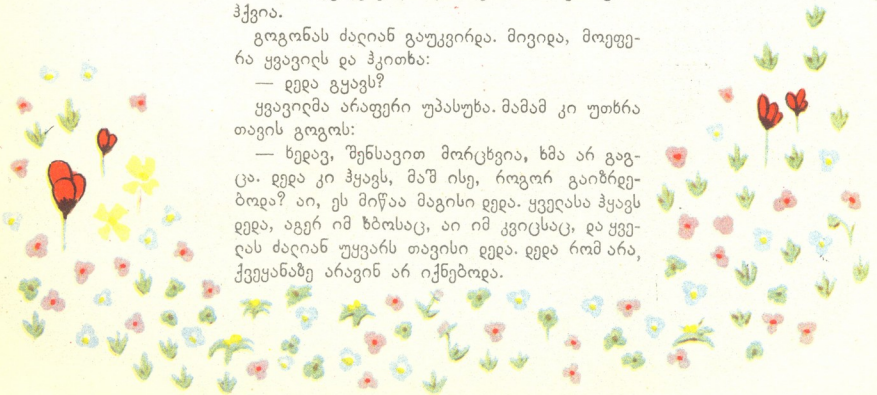 ჰქვია.
გოგონას ძალიან გაუკვირდა. მივიდა, მოეფე-
რა ყვავილს და ჰკითხა:
— დედა გყავს?
ყვავილმა არაფერი უპასუხა. მამამ კი უთხრა
თავის გოგოს:
— ხედავ, შენსავით მორცხვია, ხმა არ გაგ-
ცა. დედა კი ჰყავს, მაშ ისე, როგორ გაიზრდე-
ბოდა? აი, ეს მიწაა მაგისი დედა. ყველასა ჰყავს
დედა, აგერ იმ ხბოსაც, აი იმ კვიცსაც, და ყვე-
ლას ძალიან უყვარს თავისი დედა. დედა რომ არა,
ქვეყანაზე არავინ არ იქნებოდა.